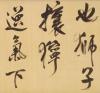 也狮子
攘獰
逆氣下